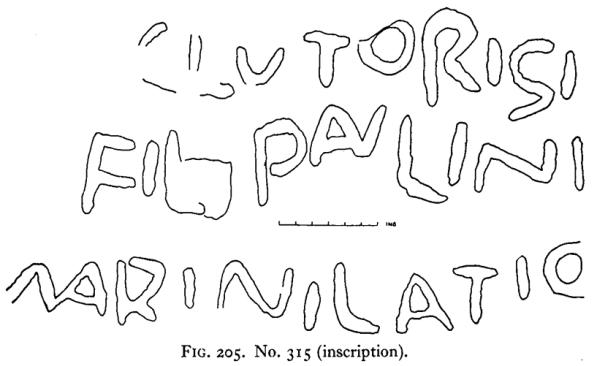 CLVTORIGI
FIL PAVLINI
INS
MARINILATIO
FIG. 205. No. 315 (inscription).